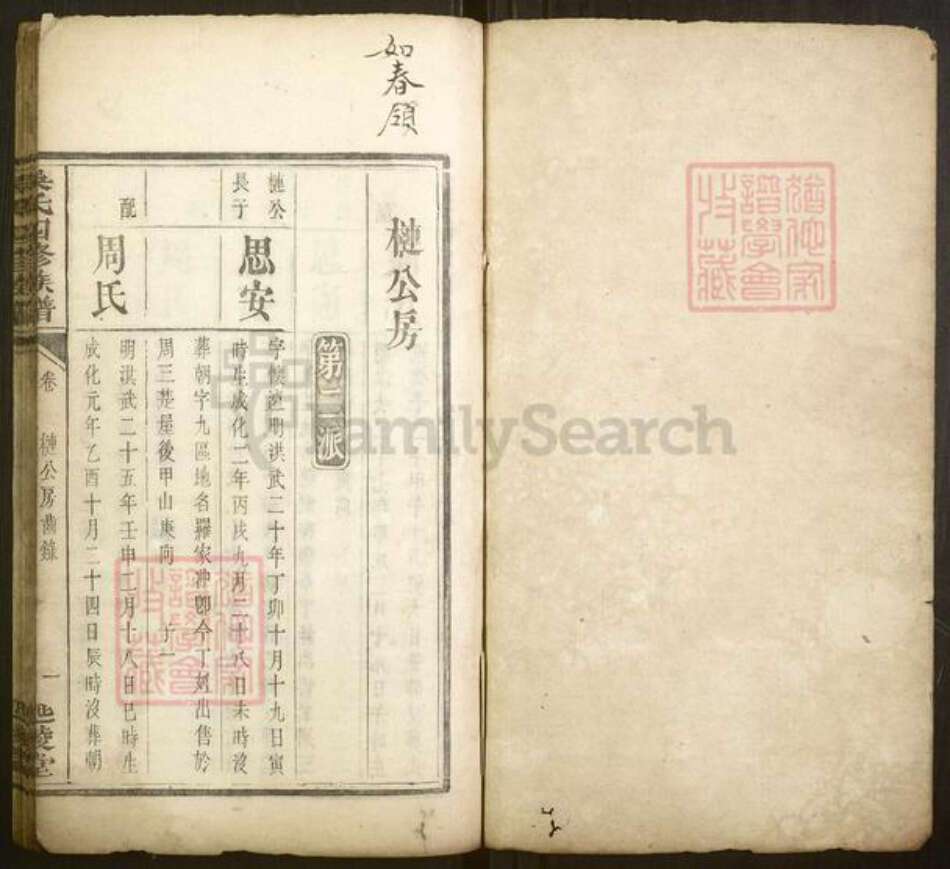 如春領
槤公房
第二派
槤公長子
思安
字懷漣明洪武二十年丁卯十月十九日寅
時生成化二年丙戌九月二十八日未時沒
葬朝字九區地名羅家沖卽今丁劉出售於
周三楚屋後甲山庚向 子一
配
周氏
明洪武二十五年壬申二月十八日巳時生
成化元年乙酉十月二十四日辰時沒葬朝
吳氏四修族譜
卷
槤公房齒錄
一
延陵堂
猶他家譜學會收藏
猶他家譜學會收藏
FamilySearch